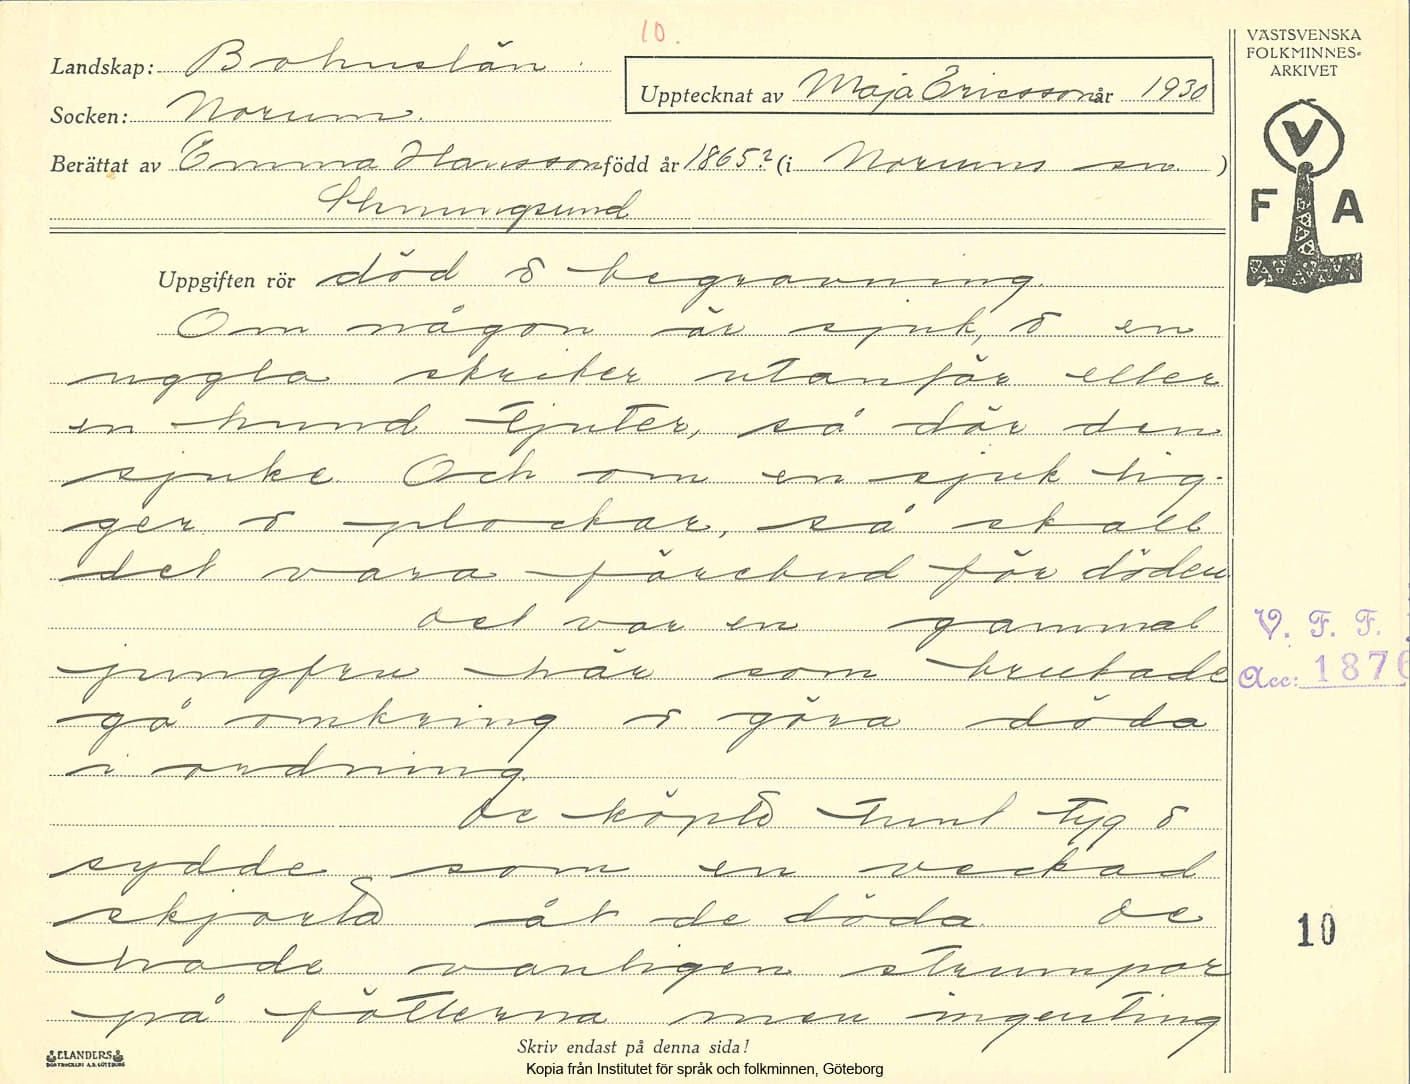 10.
VÄSTSVENSKA
FOLKMINNES-
ARKIVET
Landskap: Bohuslän
Upptecknat av Maja Ericsson år 1930
Socken: Norum.
Berättat av Emma Hansson född år 1865? (i Norums sn. )
Stenungsund
V
F A
Uppgiften rör död & begravning.
Om någon är sjuk, & en
uggla skriker utanför eller
en hund tjuter, så dör den
sjuke. Och om en sjuk lig-
ger & plockar, så skall
det vara förebud för döden.
Det var en gammal
jungfru här som brukade
gå omkring & göra döda
i ordning.
De köpte tunt tyg &
sydde som en veckad
skjorta åt de döda. De
hade vanligen strumpor
på fötterna men ingenting
V. F. F.
Acc: 1876
10
Skriv endast på denna sida!
ELANDERS
BOKTRYCKERI A.B. GÖTEBORG
Kopia från Institutet för språk och folkminnen, Göteborg